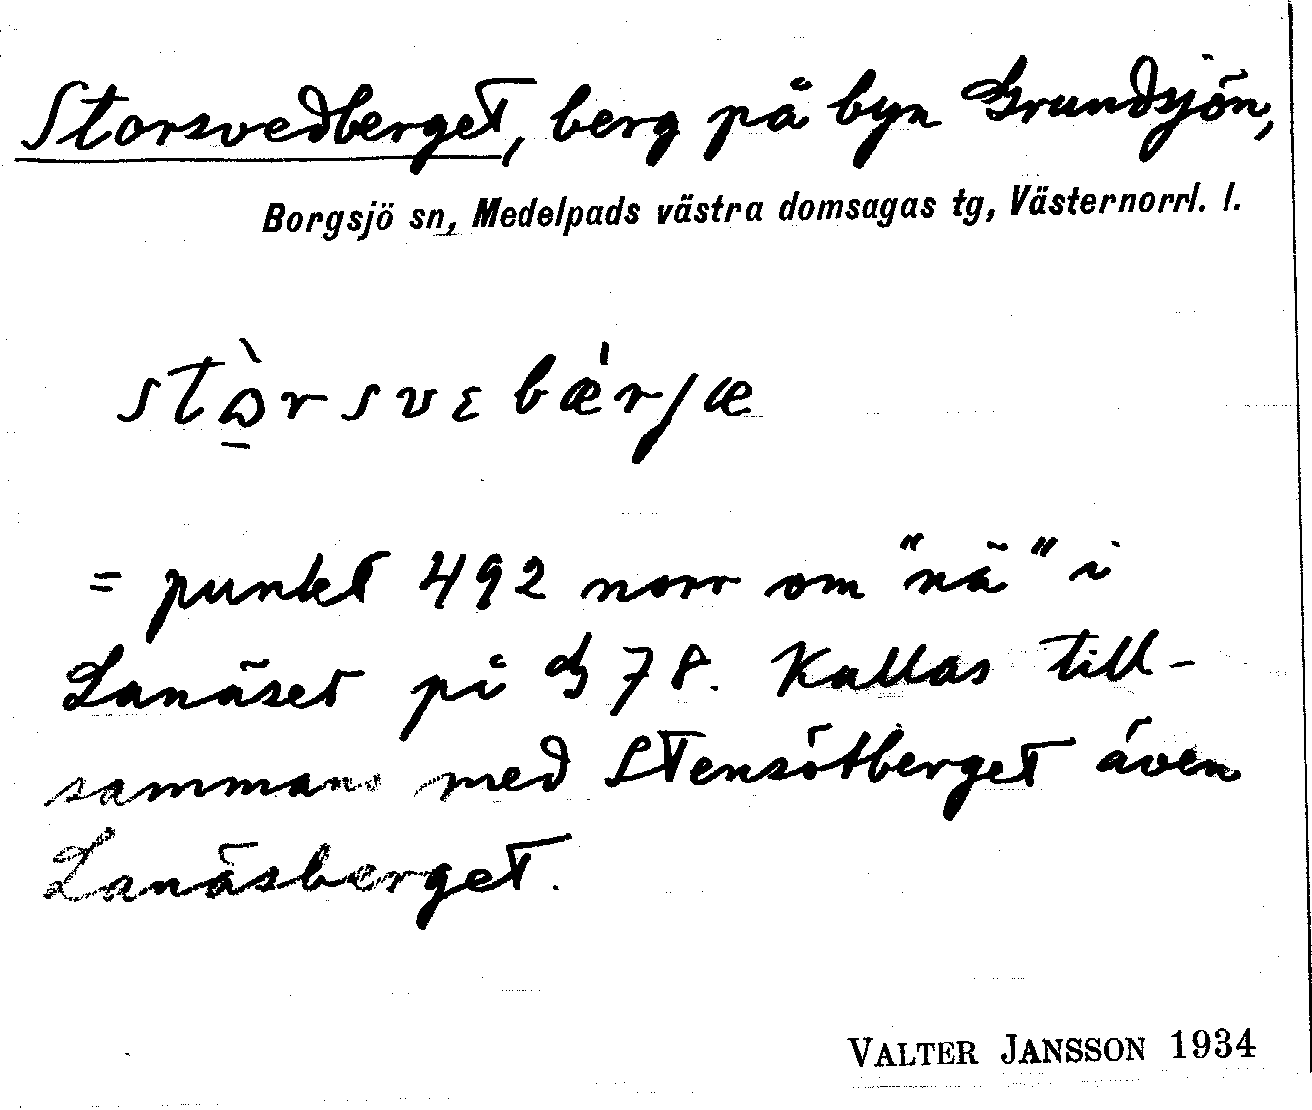 Storsvedberget, berg på byn Grundsjön,
Borgsjö sn, Medelpads västra domsagas tg, Västernorrl. l.
= punkt 492 norr om "nä" i
Lanäset på 78. Kallas till-
sammans med Stensötberget även
Lanäsberget.
VALTER JANSSON 1934